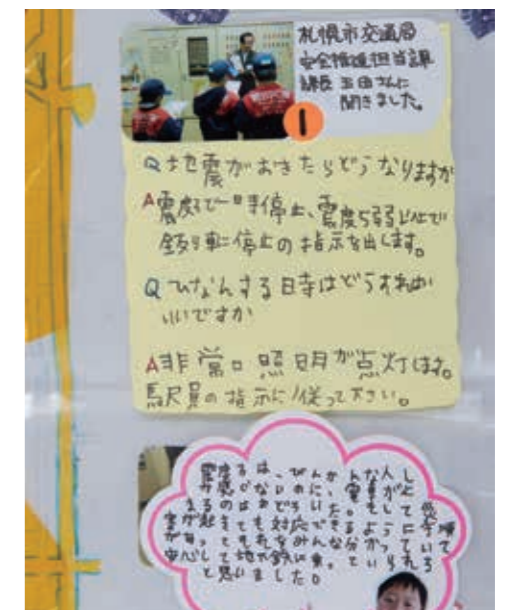 札幌市交通局
安全推進担当課
課長 玉田さんに
聞きました。
1
Q 地震がおきたらどうなりますか
A 震度4で一時停止、震度5弱以上で
運転停止の指示を出します。
Q ひなんする時はどうすれば
いいですか
A 非常口照明が点灯します。
駅員の指示に従って下さい。
震度3は、びんかんな人し
か感じないのに、電車がと
まるのはおどろいた。もし災
害が起きても対応できるように手順
があって、それをみんな分かっていて
安心して地下鉄に乗っていられる
と思いました。